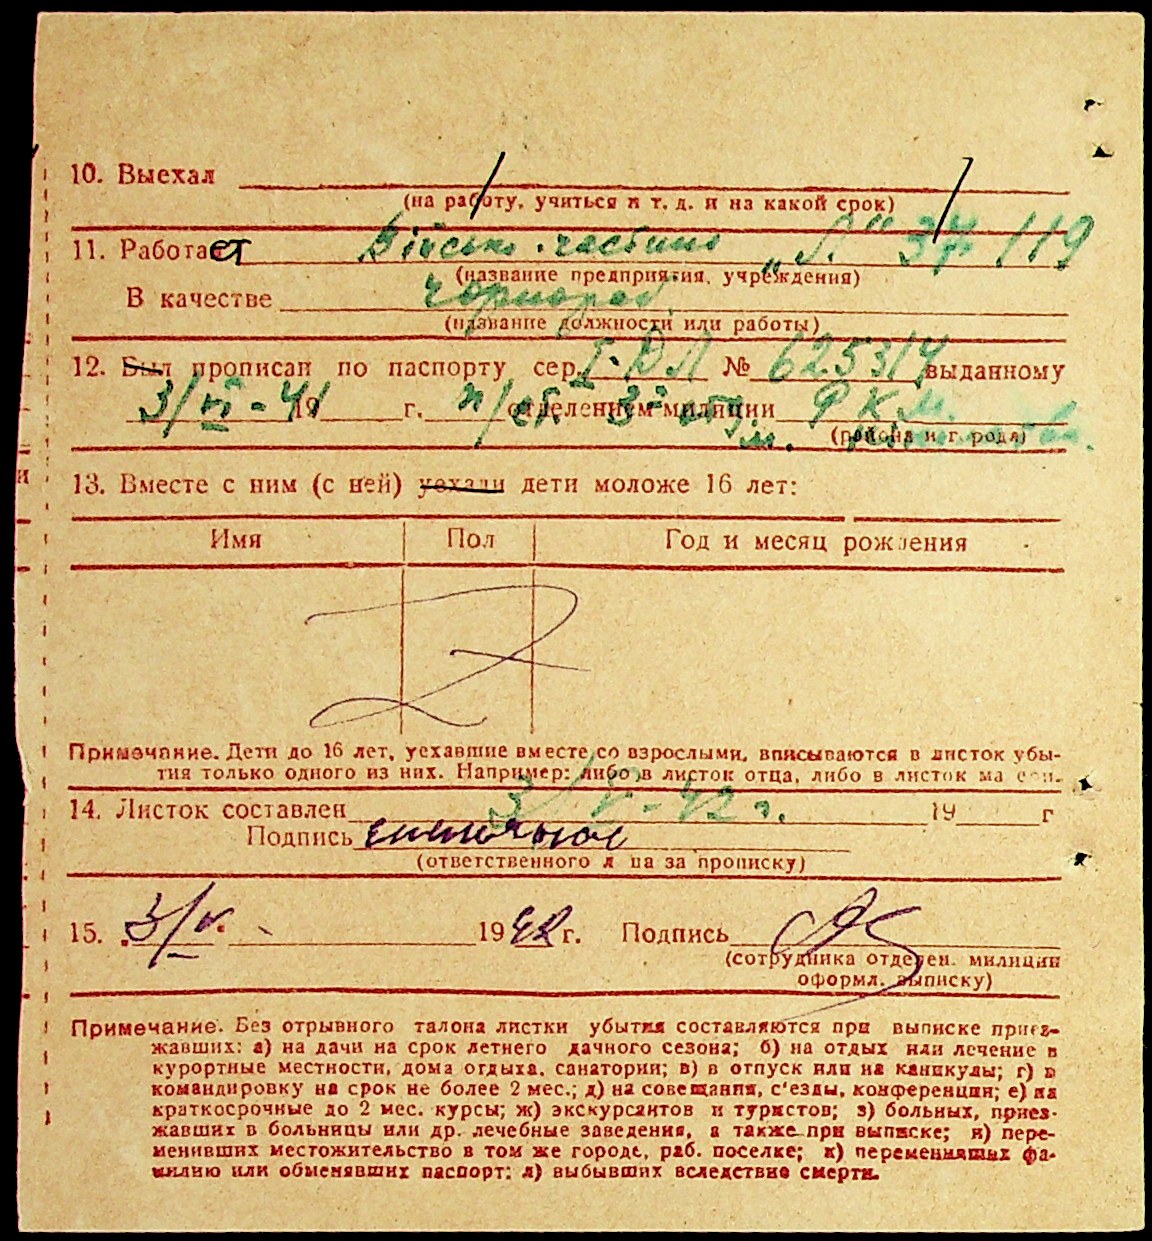 10. Выехал
(на работу, учиться и т. д. и на какой срок)
11. Работает Військ. частина „Л“ 37 119
(название предприятия, учреждения)
В качестве чорнороб
(название должности или работы)
12. Был прописан по паспорту сер. I-РЛ № 625314 выданному
3/VI-41 19 г. п/ст. отделением милиции 3° отд. м. РКМ.
(района и города)
13. Вместе с ним (с ней) уехали дети моложе 16 лет:
Имя Пол Год и месяц рождения
Примечание. Дети до 16 лет, уехавшие вместе со взрослыми, вписываются в листок убы-
тия только одного из них. Например: либо в листок отца, либо в листок матери.
14. Листок составлен 3/V-42 г. 19 г
Подпись
(ответственного лица за прописку)
15. 3/V. 1942 г. Подпись
(сотрудника отделен. милиции
оформл. выписку)
Примечание. Без отрывного талона листки убытия составляются при выписке приез-
жавших: а) на дачи на срок летнего дачного сезона; б) на отдых или лечение в
курортные местности, дома отдыха, санатории; в) в отпуск или на каникулы; г) в
командировку на срок не более 2 мес.; д) на совещания, с'езды, конференции; е) на
краткосрочные до 2 мес. курсы; ж) экскурсантов и туристов; з) больных, приез-
жавших в больницы или др. лечебные заведения, а также при выписке; и) пере-
менивших местожительство в том же городе, раб. поселке; к) переменивших фа-
милию или обменявших паспорт; л) выбывших вследствие смерти.